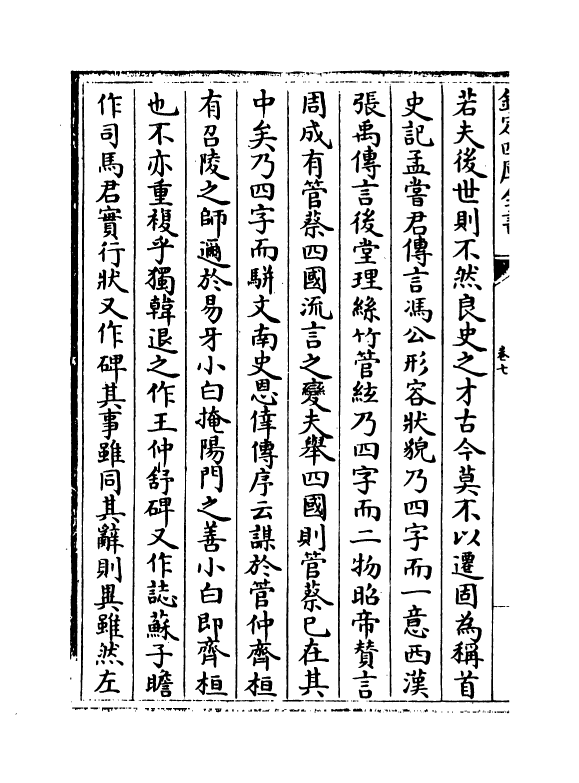 欽定四庫全書
卷七
若夫後世則不然良史之才古今莫不以遷固為稱首
史記孟嘗君傳言馮公形容狀貌乃四字而一意西漢
張禹傳言後堂理絲竹管絃乃四字而二物昭帝贊言
周成有管蔡四國流言之變夫舉四國則管蔡已在其
中矣乃四字而駢文南史恩倖傳序云謀於管仲齊桓
有召陵之師邇於易牙小白掩陽門之善小白即齊桓
也不亦重複乎獨韓退之作王仲舒碑又作誌蘇子瞻
作司馬君實行狀又作碑其事雖同其辭則異雖然左